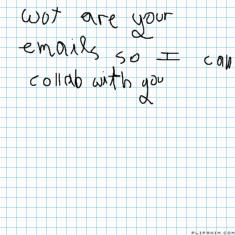 wot are your
emails so I can
collab with you
FLIPANIM.COM